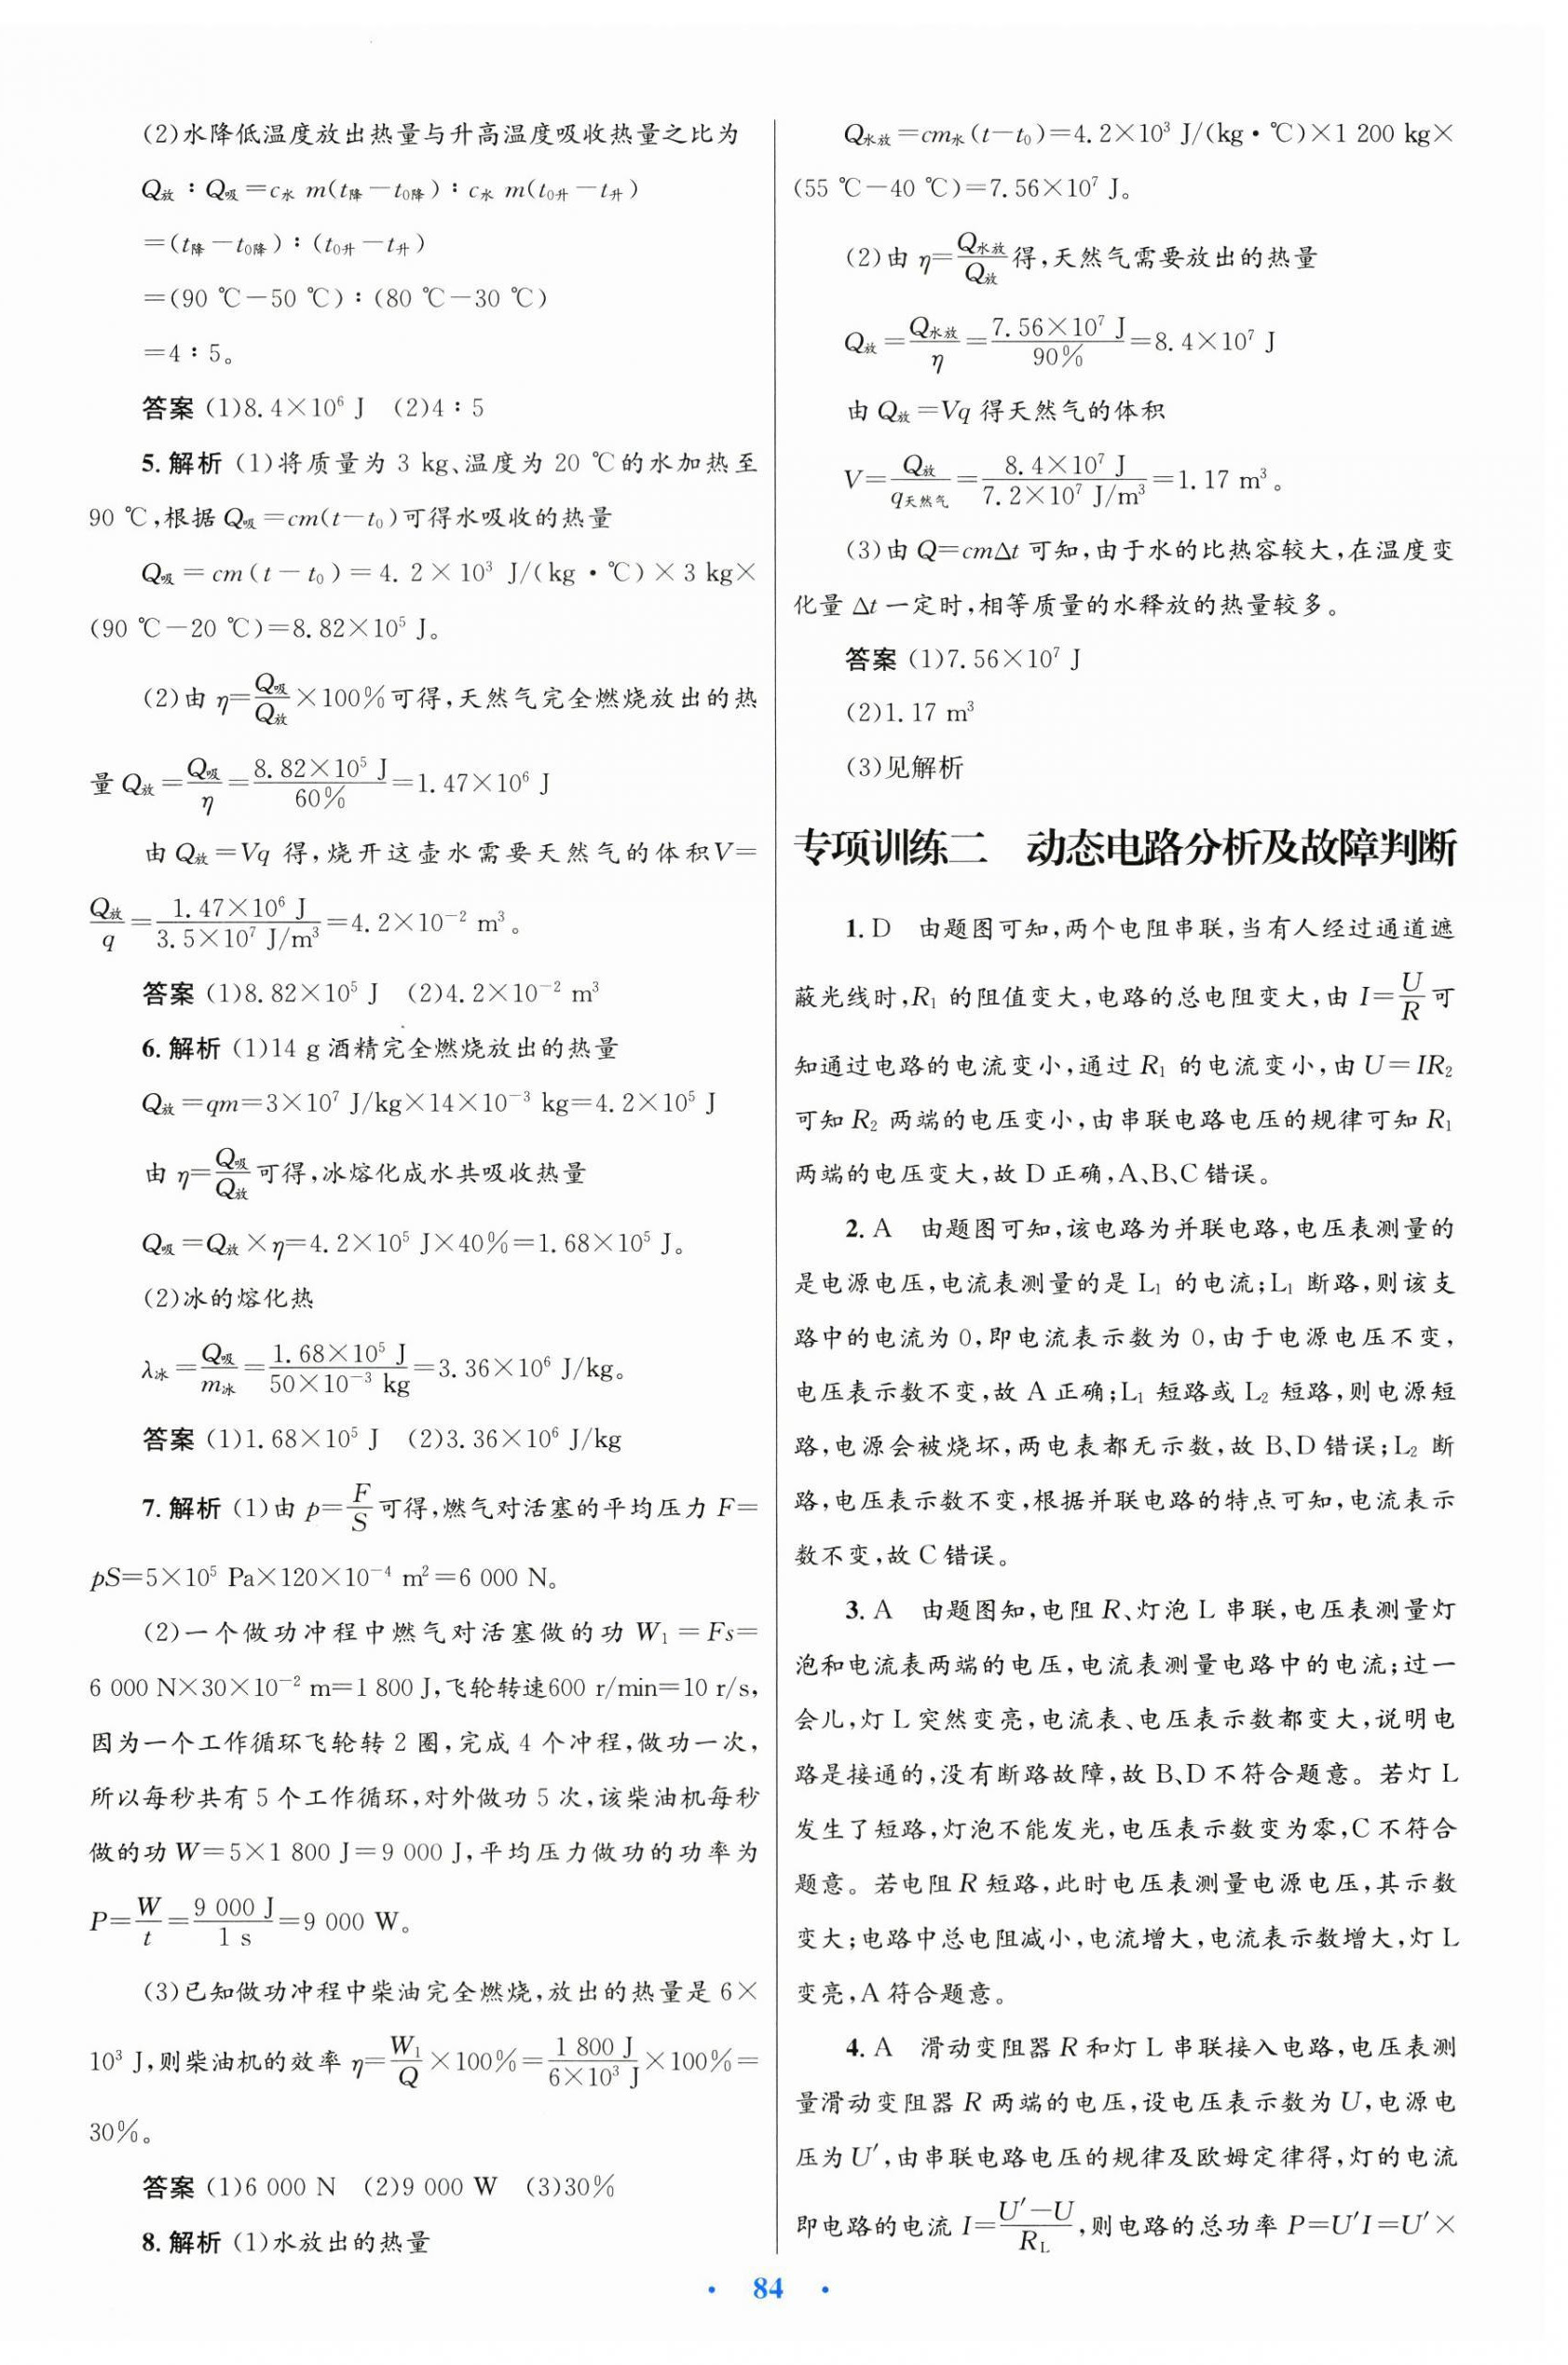 (2)水降低温度放出热量与升高温度吸收热量之比为
Q放∶Q吸=c水 m(t降-t0降)∶c水 m(t0升-t升)
=(t降-t0降)∶(t0升-t升)
=(90 ℃-50 ℃)∶(80 ℃-30 ℃)
=4∶5。
答案 (1)8.4×10⁶ J (2)4∶5
5.解析 (1)将质量为 3 kg、温度为 20 ℃的水加热至
90 ℃,根据 Q吸=cm(t-t₀)可得水吸收的热量
Q吸=cm(t-t₀)=4.2×10³ J/(kg·℃)×3 kg×
(90 ℃-20 ℃)=8.82×10⁵ J。
(2)由 η=Q吸/Q放×100%可得,天然气完全燃烧放出的热
量 Q放=Q吸/η=8.82×10⁵ J/60%=1.47×10⁶ J
由 Q放=Vq 得,烧开这壶水需要天然气的体积V=
Q放/q=1.47×10⁶ J/3.5×10⁷ J/m³=4.2×10⁻² m³。
答案 (1)8.82×10⁵ J (2)4.2×10⁻² m³
6.解析 (1)14 g 酒精完全燃烧放出的热量
Q放=qm=3×10⁷ J/kg×14×10⁻³ kg=4.2×10⁵ J
由 η=Q吸/Q放可得,冰熔化成水共吸收热量
Q吸=Q放×η=4.2×10⁵ J×40%=1.68×10⁵ J。
(2)冰的熔化热
λ冰=Q吸/m冰=1.68×10⁵ J/50×10⁻³ kg=3.36×10⁶ J/kg。
答案 (1)1.68×10⁵ J (2)3.36×10⁶ J/kg
7.解析 (1)由 p=F/S可得,燃气对活塞的平均压力 F=
pS=5×10⁵ Pa×120×10⁻⁴ m²=6 000 N。
(2)一个做功冲程中燃气对活塞做的功 W₁=Fs=
6 000 N×30×10⁻² m=1 800 J,飞轮转速600 r/min=10 r/s,
因为一个工作循环飞轮转 2 圈,完成 4 个冲程,做功一次,
所以每秒共有 5 个工作循环,对外做功 5 次,该柴油机每秒
做的功 W=5×1 800 J=9 000 J,平均压力做功的功率为
P=W/t=9 000 J/1 s=9 000 W。
(3)已知做功冲程中柴油完全燃烧,放出的热量是 6×
10³ J,则柴油机的效率 η=W₁/Q×100%=1 800 J/6×10³ J×100%=
30%。
答案 (1)6 000 N (2)9 000 W (3)30%
8.解析 (1)水放出的热量
Q水放=cm水(t-t₀)=4.2×10³ J/(kg·℃)×1 200 kg×
(55 ℃-40 ℃)=7.56×10⁷ J。
(2)由 η=Q水放/Q放得,天然气需要放出的热量
Q放=Q水放/η=7.56×10⁷ J/90%=8.4×10⁷ J
由 Q放=Vq 得天然气的体积
V=Q放/q天然气=8.4×10⁷ J/7.2×10⁷ J/m³=1.17 m³。
(3)由 Q=cmΔt 可知,由于水的比热容较大,在温度变
化量 Δt 一定时,相等质量的水释放的热量较多。
答案 (1)7.56×10⁷ J
(2)1.17 m³
(3)见解析
专项训练二 动态电路分析及故障判断
1.D 由题图可知,两个电阻串联,当有人经过通道遮
蔽光线时,R₁ 的阻值变大,电路的总电阻变大,由 I=U/R可
知通过电路的电流变小,通过 R₁ 的电流变小,由 U=IR₂
可知 R₂ 两端的电压变小,由串联电路电压的规律可知 R₁
两端的电压变大,故 D 正确,A、B、C 错误。
2.A 由题图可知,该电路为并联电路,电压表测量的
是电源电压,电流表测量的是 L₁ 的电流;L₁ 断路,则该支
路中的电流为 0,即电流表示数为 0,由于电源电压不变,
电压表示数不变,故 A 正确;L₁ 短路或 L₂ 短路,则电源短
路,电源会被烧坏,两电表都无示数,故 B、D 错误;L₂ 断
路,电压表示数不变,根据并联电路的特点可知,电流表示
数不变,故 C 错误。
3.A 由题图知,电阻 R、灯泡 L 串联,电压表测量灯
泡和电流表两端的电压,电流表测量电路中的电流;过一
会儿,灯 L 突然变亮,电流表、电压表示数都变大,说明电
路是接通的,没有断路故障,故 B、D 不符合题意。若灯 L
发生了短路,灯泡不能发光,电压表示数变为零,C 不符合
题意。若电阻 R 短路,此时电压表测量电源电压,其示数
变大;电路中总电阻减小,电流增大,电流表示数增大,灯 L
变亮,A 符合题意。
4.A 滑动变阻器 R 和灯 L 串联接入电路,电压表测
量滑动变阻器 R 两端的电压,设电压表示数为 U,电源电
压为 U′,由串联电路电压的规律及欧姆定律得,灯的电流
即电路的电流 I=U′-U/R_L,则电路的总功率 P=U′I=U′×
· 84 ·